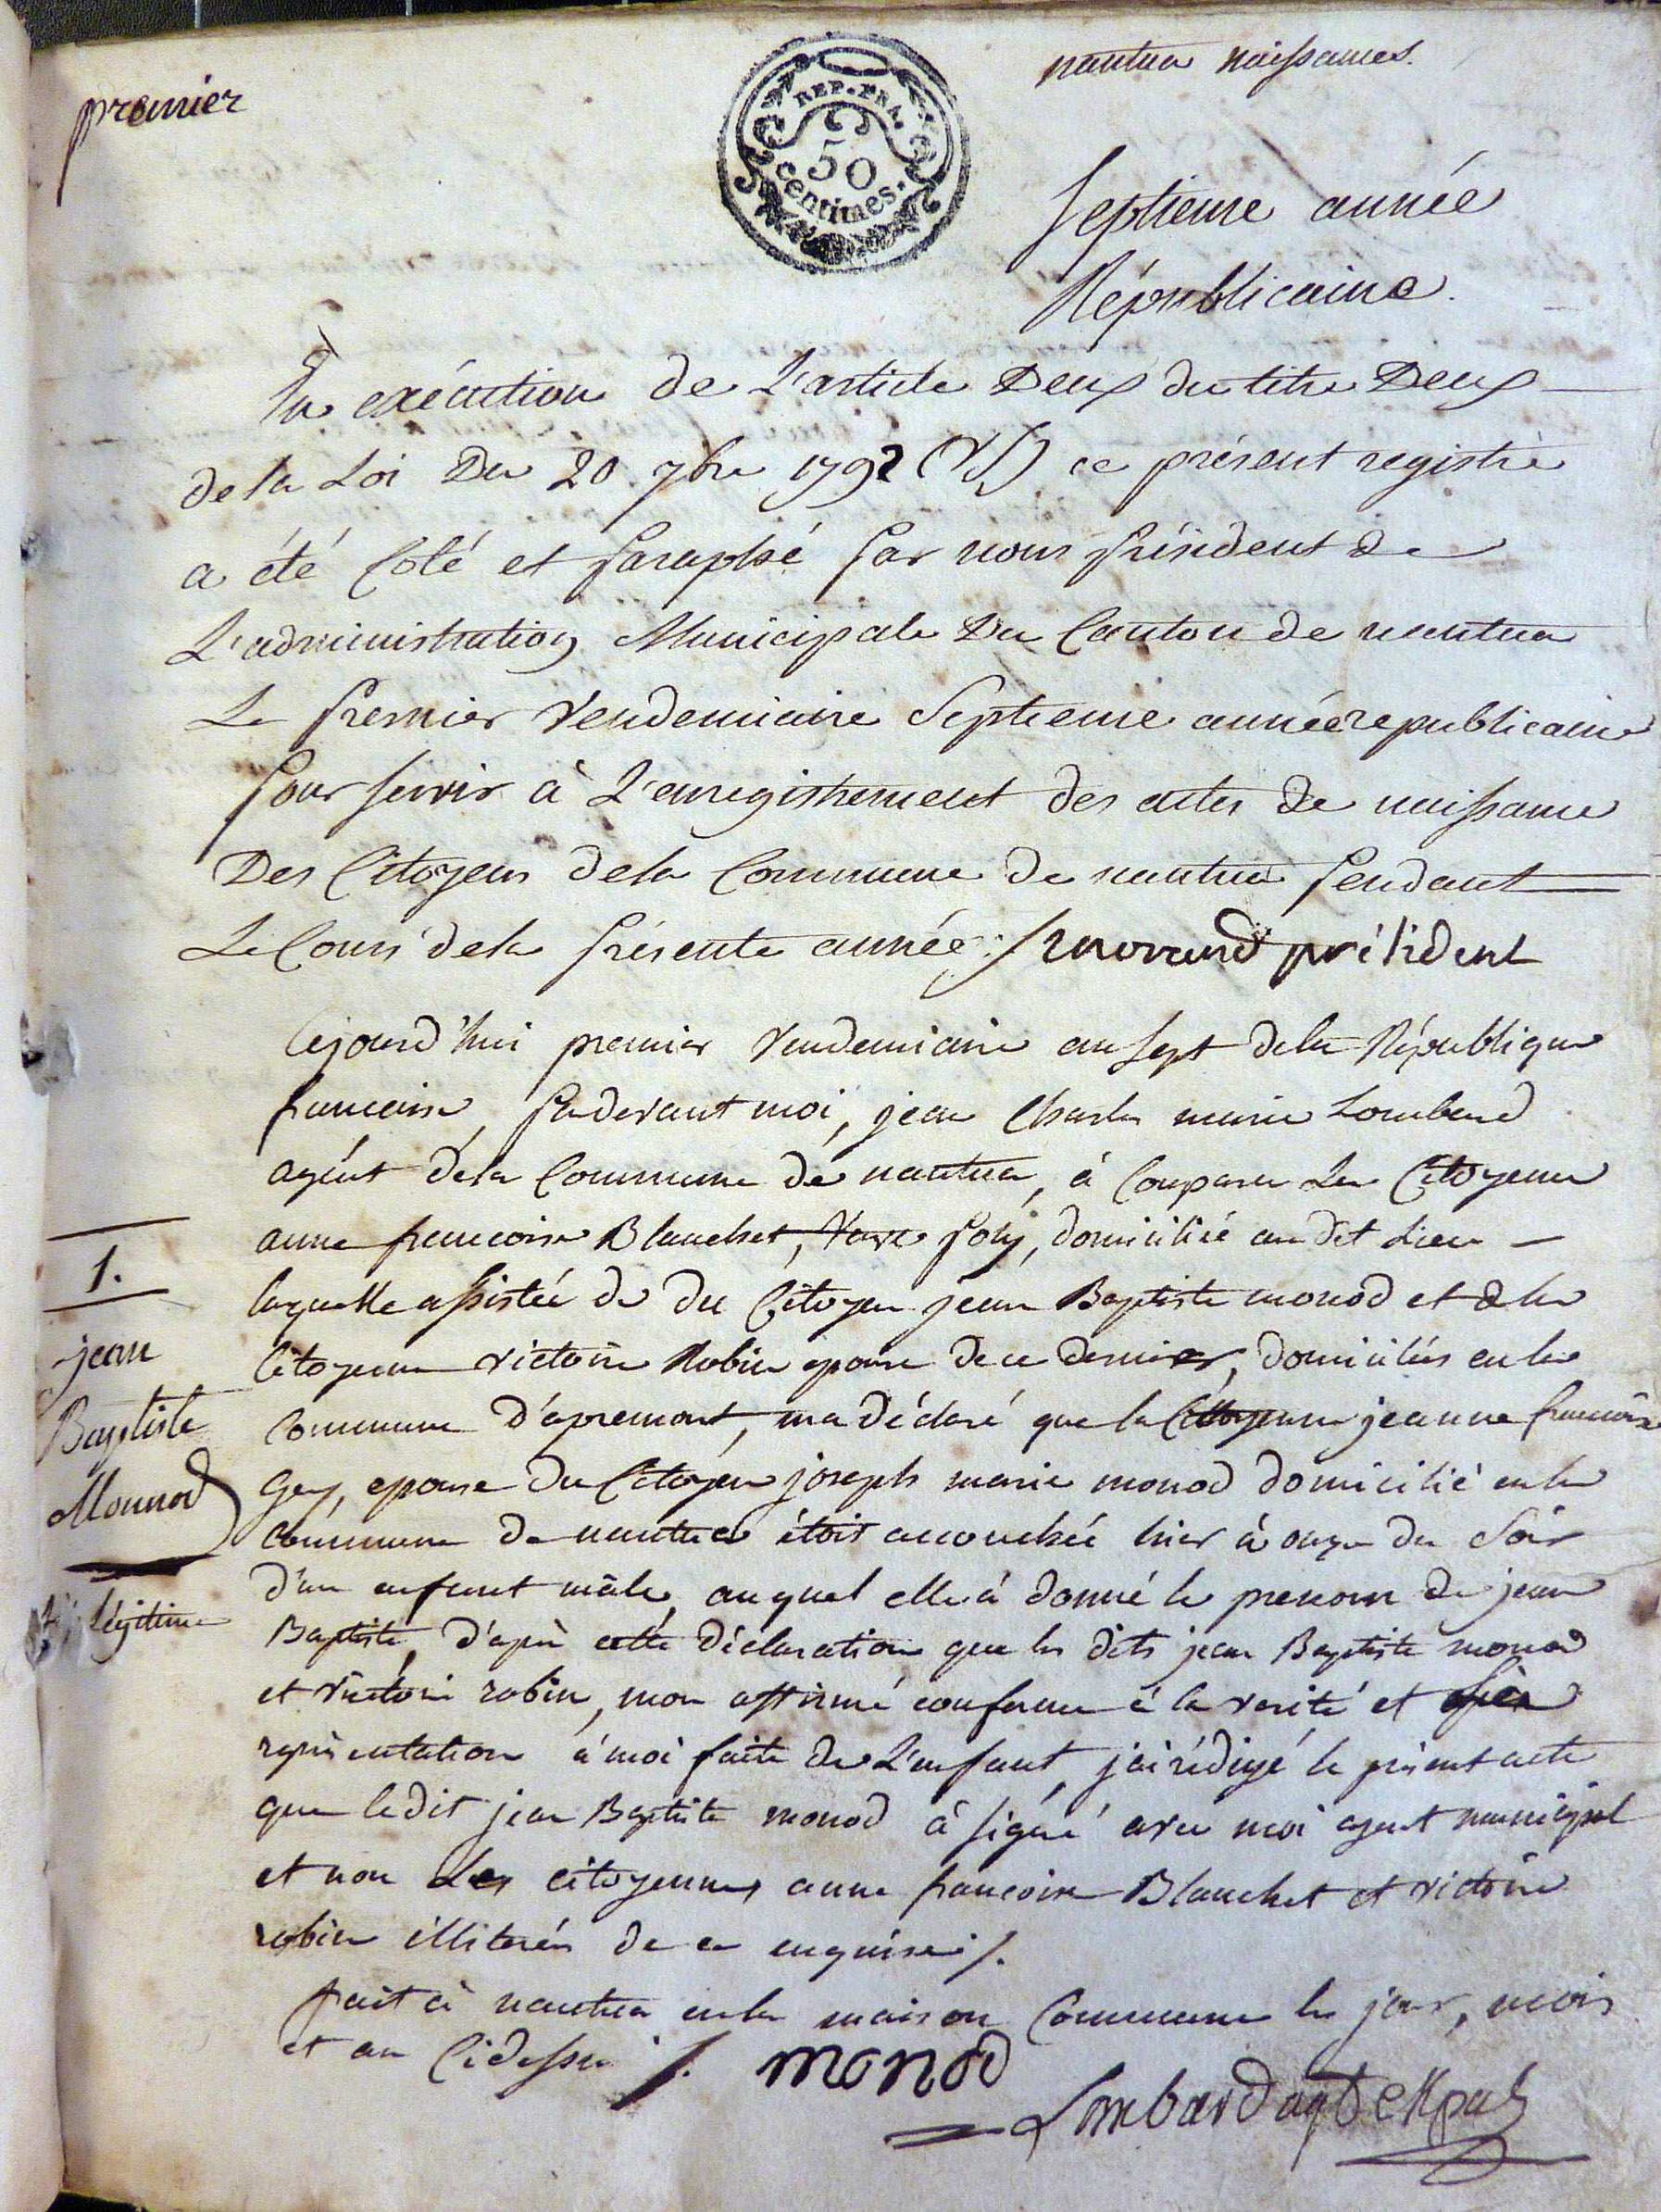 premier
REP. FRA.
50
centimes.
nantua naissances.
Septieme année
Républicaine.
En exécution de L'article Deux du titre Deux
de la Loi Du 20 7bre 1792 (VS) ce présent registre
a été Coté et Paraphé Par nous Président de
L'administration Municipale Du Canton de nantua
Le Premier Vendemiaire Septieme année republicaine
Pour servir à L'enregistrement des actes de naissance
Des Citoyens dela Commune de nantua Pendant
Le Cours dela Présente année ./. président
Cejourd'hui premier Vendemiaire an sept dela République
francaise, Pardevant moi, jean Charles marie Lombard
agent dela Commune de nantua, à Comparu La Citoyenne
anne francoise Blanchet, Veuve joly, domiciliée au dit Lieu
laquelle assistée de du Citoyen jean Baptiste monod et de la
Citoyenne victoire Robin epouse de ce dernier, domiciliés en la
Commune d'apremont, ma déclaré que la Citoyenne jeanne francoise
Gey, epouse du Citoyen joseph marie monod domicilié en la
Commune de nantua étoit accouchée hier à onze du Soir
d'un enfant mâle, auquel elle à donné le prenom de jean
Baptiste, d'après cette déclaration que les dits jean Baptiste monod
et victoire robin, mon affirmé conforme à la verité et
représentation à moi faite de L'enfant, j'ai rédigé le présent acte
que ledit jean Baptiste monod à signé avec moi agent municipal
et non Les citoyennes anne francoise Blanchet et victoire
robin illiterées de ce enquises ./.
fait à nantua en la maison Commune les jour, mois
et an Cidessus ./. monod
Lombard agt Mpal
1.
jean
Baptiste
Monnod
Légitime